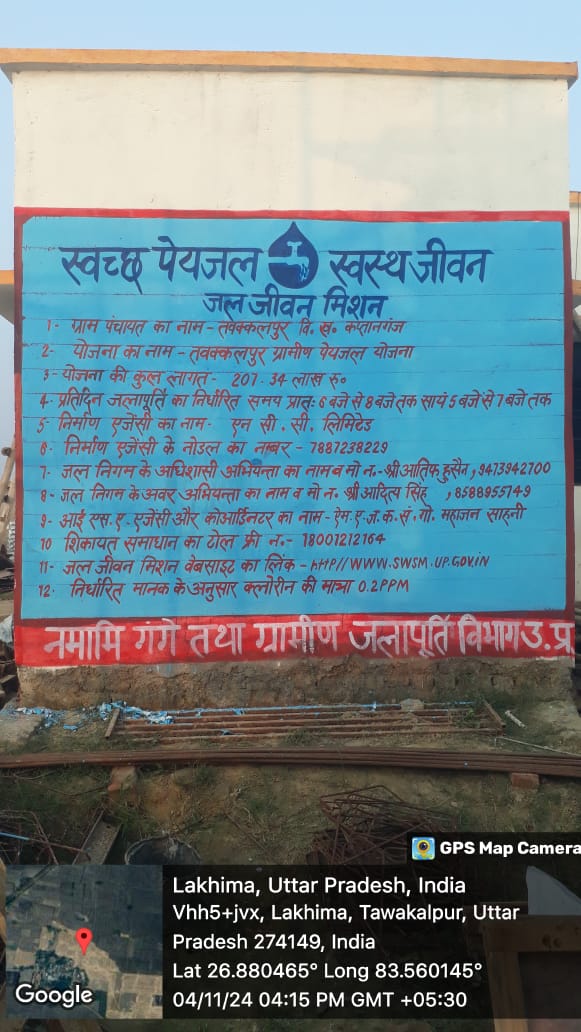 स्वच्छ पेयजल स्वस्थ जीवन
जल जीवन मिशन
1- ग्राम पंचायत का नाम - तवक्कलपुर वि. ख. कप्तानगंज
2- योजना का नाम - तवक्कलपुर ग्रामीण पेयजल योजना
3- योजना की कुल लागत- 207.34 लाख रु०
4- प्रतिदिन जलापूर्ति का निर्धारित समय प्रातः 6 बजे से 8 बजे तक सायं 5 बजे से 7 बजे तक
5- निर्माण एजेंसी का नाम- एन सी. सी. लिमिटेड
6- निर्माण एजेंसी के नोडल का नाबर - 7887238229
7- जल निगम के अधिशासी अभियन्ता का नाम व मो न.- श्री आतिफ हुसैन, 9473942700
8- जल निगम के अवर अभियन्ता का नाम व मो न. श्री आदित्य सिंह , 8588955749
9- आई एस. ए. एजेंसी और कोआर्डिनटर का नाम- ऐम. ए. ज. क. सं. गो. महाजन साहनी
10 शिकायत समाधान का टोल फ्री न.- 18001212164
11- जल जीवन मिशन वेबसाइट का लिंक - http//WWW.SWSM.UP.GOV.IN
12- निर्धारित मानक के अनुसार क्लोरीन की मात्रा 0.2PPM
नमामि गंगे तथा ग्रामीण जलापूर्ति विभाग उ. प्र
GPS Map Camera
Lakhima, Uttar Pradesh, India
Vhh5+jvx, Lakhima, Tawakalpur, Uttar
Pradesh 274149, India
Lat 26.880465° Long 83.560145°
04/11/24 04:15 PM GMT +05:30
Google